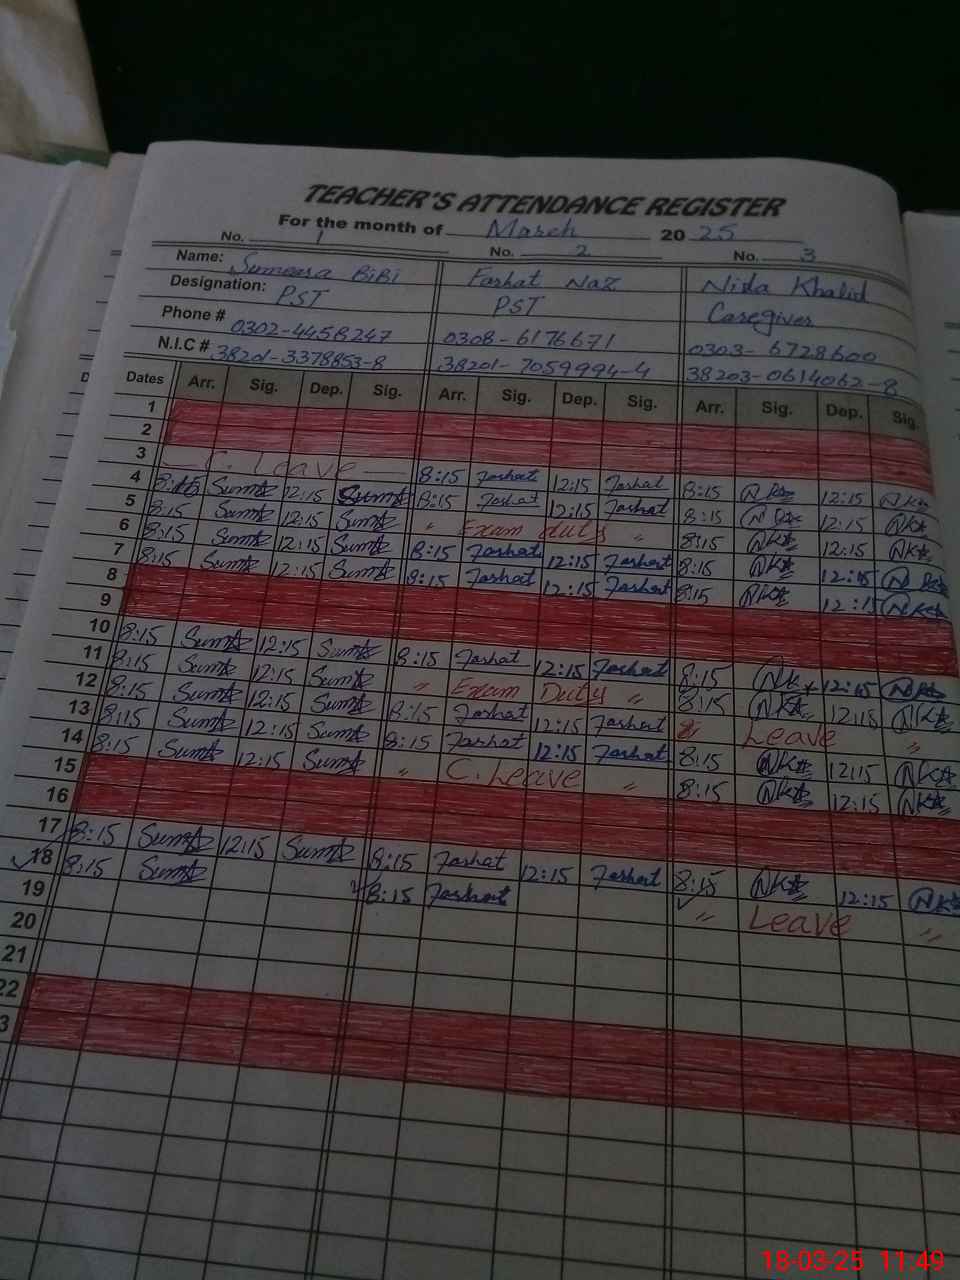 TEACHER'S ATTENDANCE REGISTER
For the month of March 20 25
No. 1 No. 2 No. 3
Name: Sumaara BiBi Farhat Naz Nida Khalid
Designation: PST PST Caregiver
Phone # 0302-4458247 0308-6176671 0303-6728600
N.I.C # 38201-3378853-8 38201-7059994-4 38203-0614062-8
Dates Arr. Sig. Dep. Sig. Arr. Sig. Dep. Sig. Arr. Sig. Dep. Sig.
1
2
3 C. Leave 8:15 Farhat 12:15 Farhat 8:15 NK 12:15 NK
4 8:15 Sum 12:15 Sum 8:15 Farhat 12:15 Farhat 8:15 12:15 NK
5 8:15 Sum 12:15 Sum " Exam duty " 8:15 NK 12:15 NK
6 8:15 Sum 12:15 Sum 8:15 Farhat 12:15 Farhat 8:15 NK 12:15
7 8:15 Sum 12:15 Sum 8:15 Farhat 12:15 Farhat 8:15 NK 12:15
8
9
10 8:15 Sum 12:15 Sum 8:15 Farhat 12:15 Farhat 8:15 NK 12:15
11 8:15 Sum 12:15 Sum " Exam Duty " 8:15 NK 12:15 NK
12 8:15 Sum 12:15 Sum 8:15 Farhat 12:15 Farhat Leave "
13 8:15 Sum 12:15 Sum 8:15 Farhat 12:15 Farhat 8:15 NK 12:15 NK
14 8:15 Sum 12:15 Sum " C. Leave " 8:15 NK 12:15 NK
15
16
17 8:15 Sum 12:15 Sum 8:15 Farhat 12:15 Farhat 8:15 NK 12:15 NK
18 8:15 Sum 8:15 Farhat " Leave "
19
20
21
22
3
18-03-25 11:49